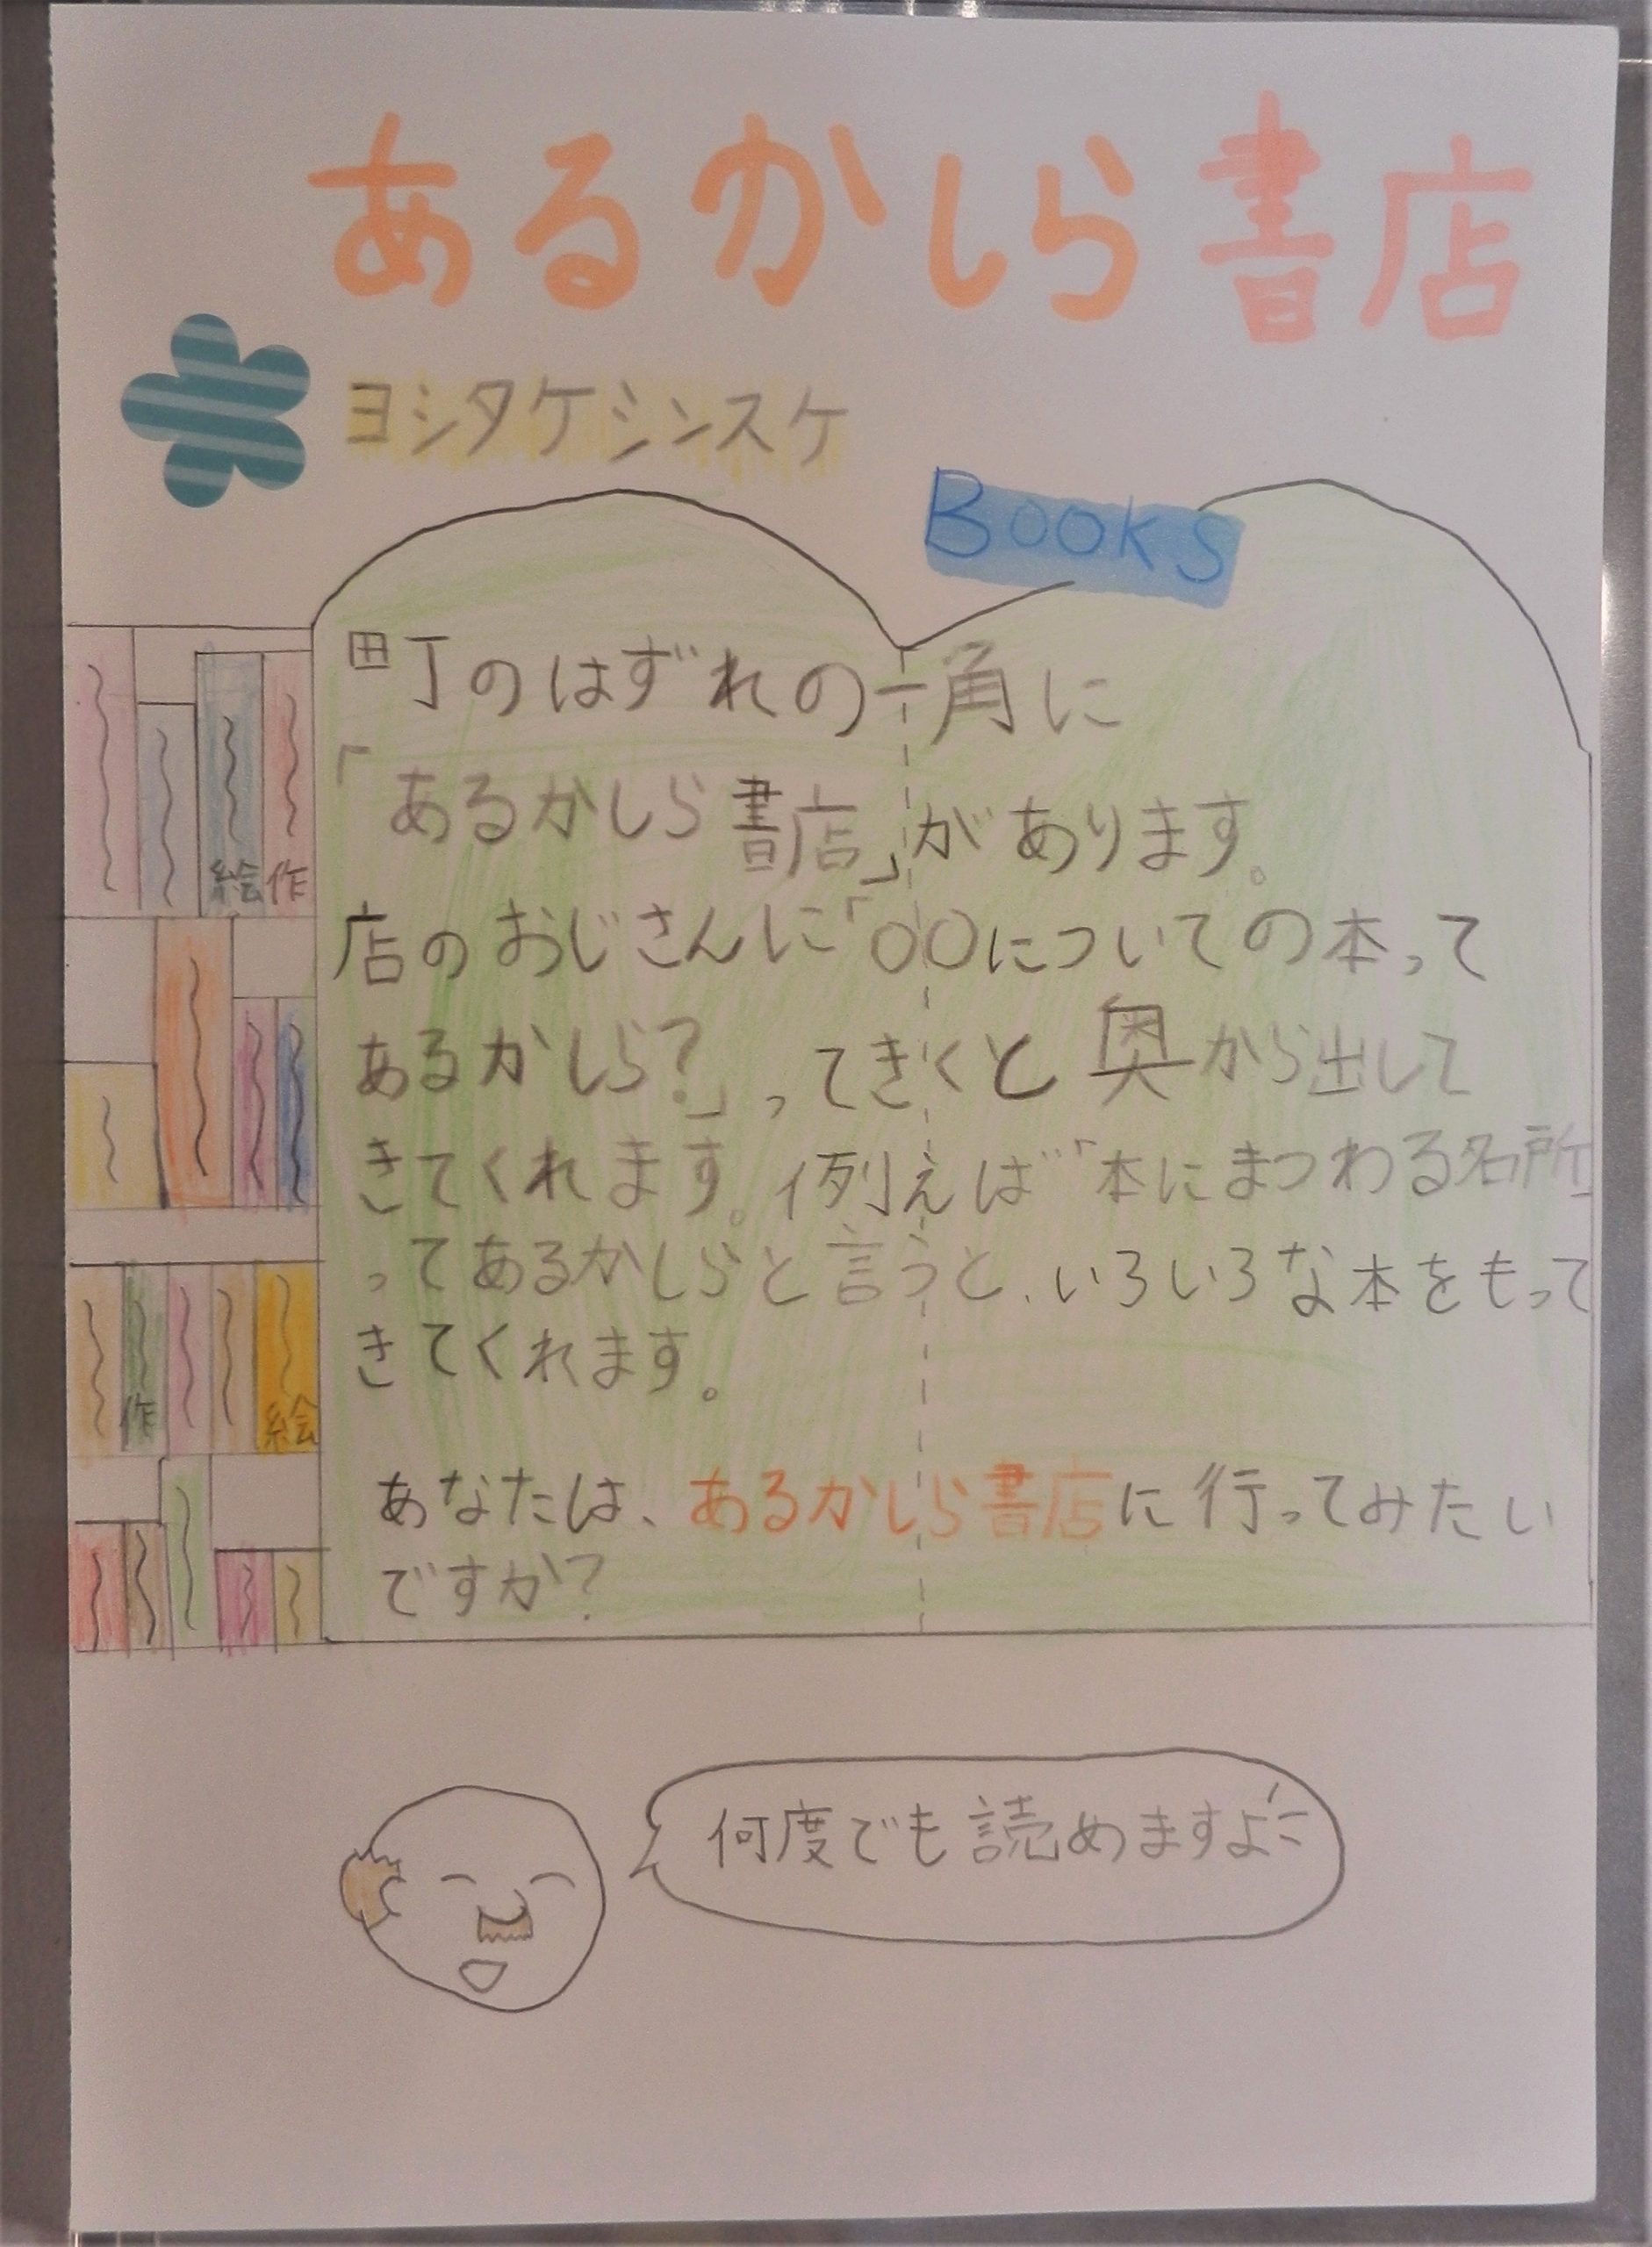 あるかしら書店
ヨシタケシンスケ
Books
町のはずれの一角に
「あるかしら書店」があります。
店のおじさんに「〇〇についての本って
あるかしら？」ってきくと奥から出して
きてくれます。例えば「本にまつわる名所」
ってあるかしらと言うと、いろいろな本をもって
きてくれます。
あなたは、あるかしら書店に行ってみたい
ですか？
絵 作
作 絵
何度でも読めますよ